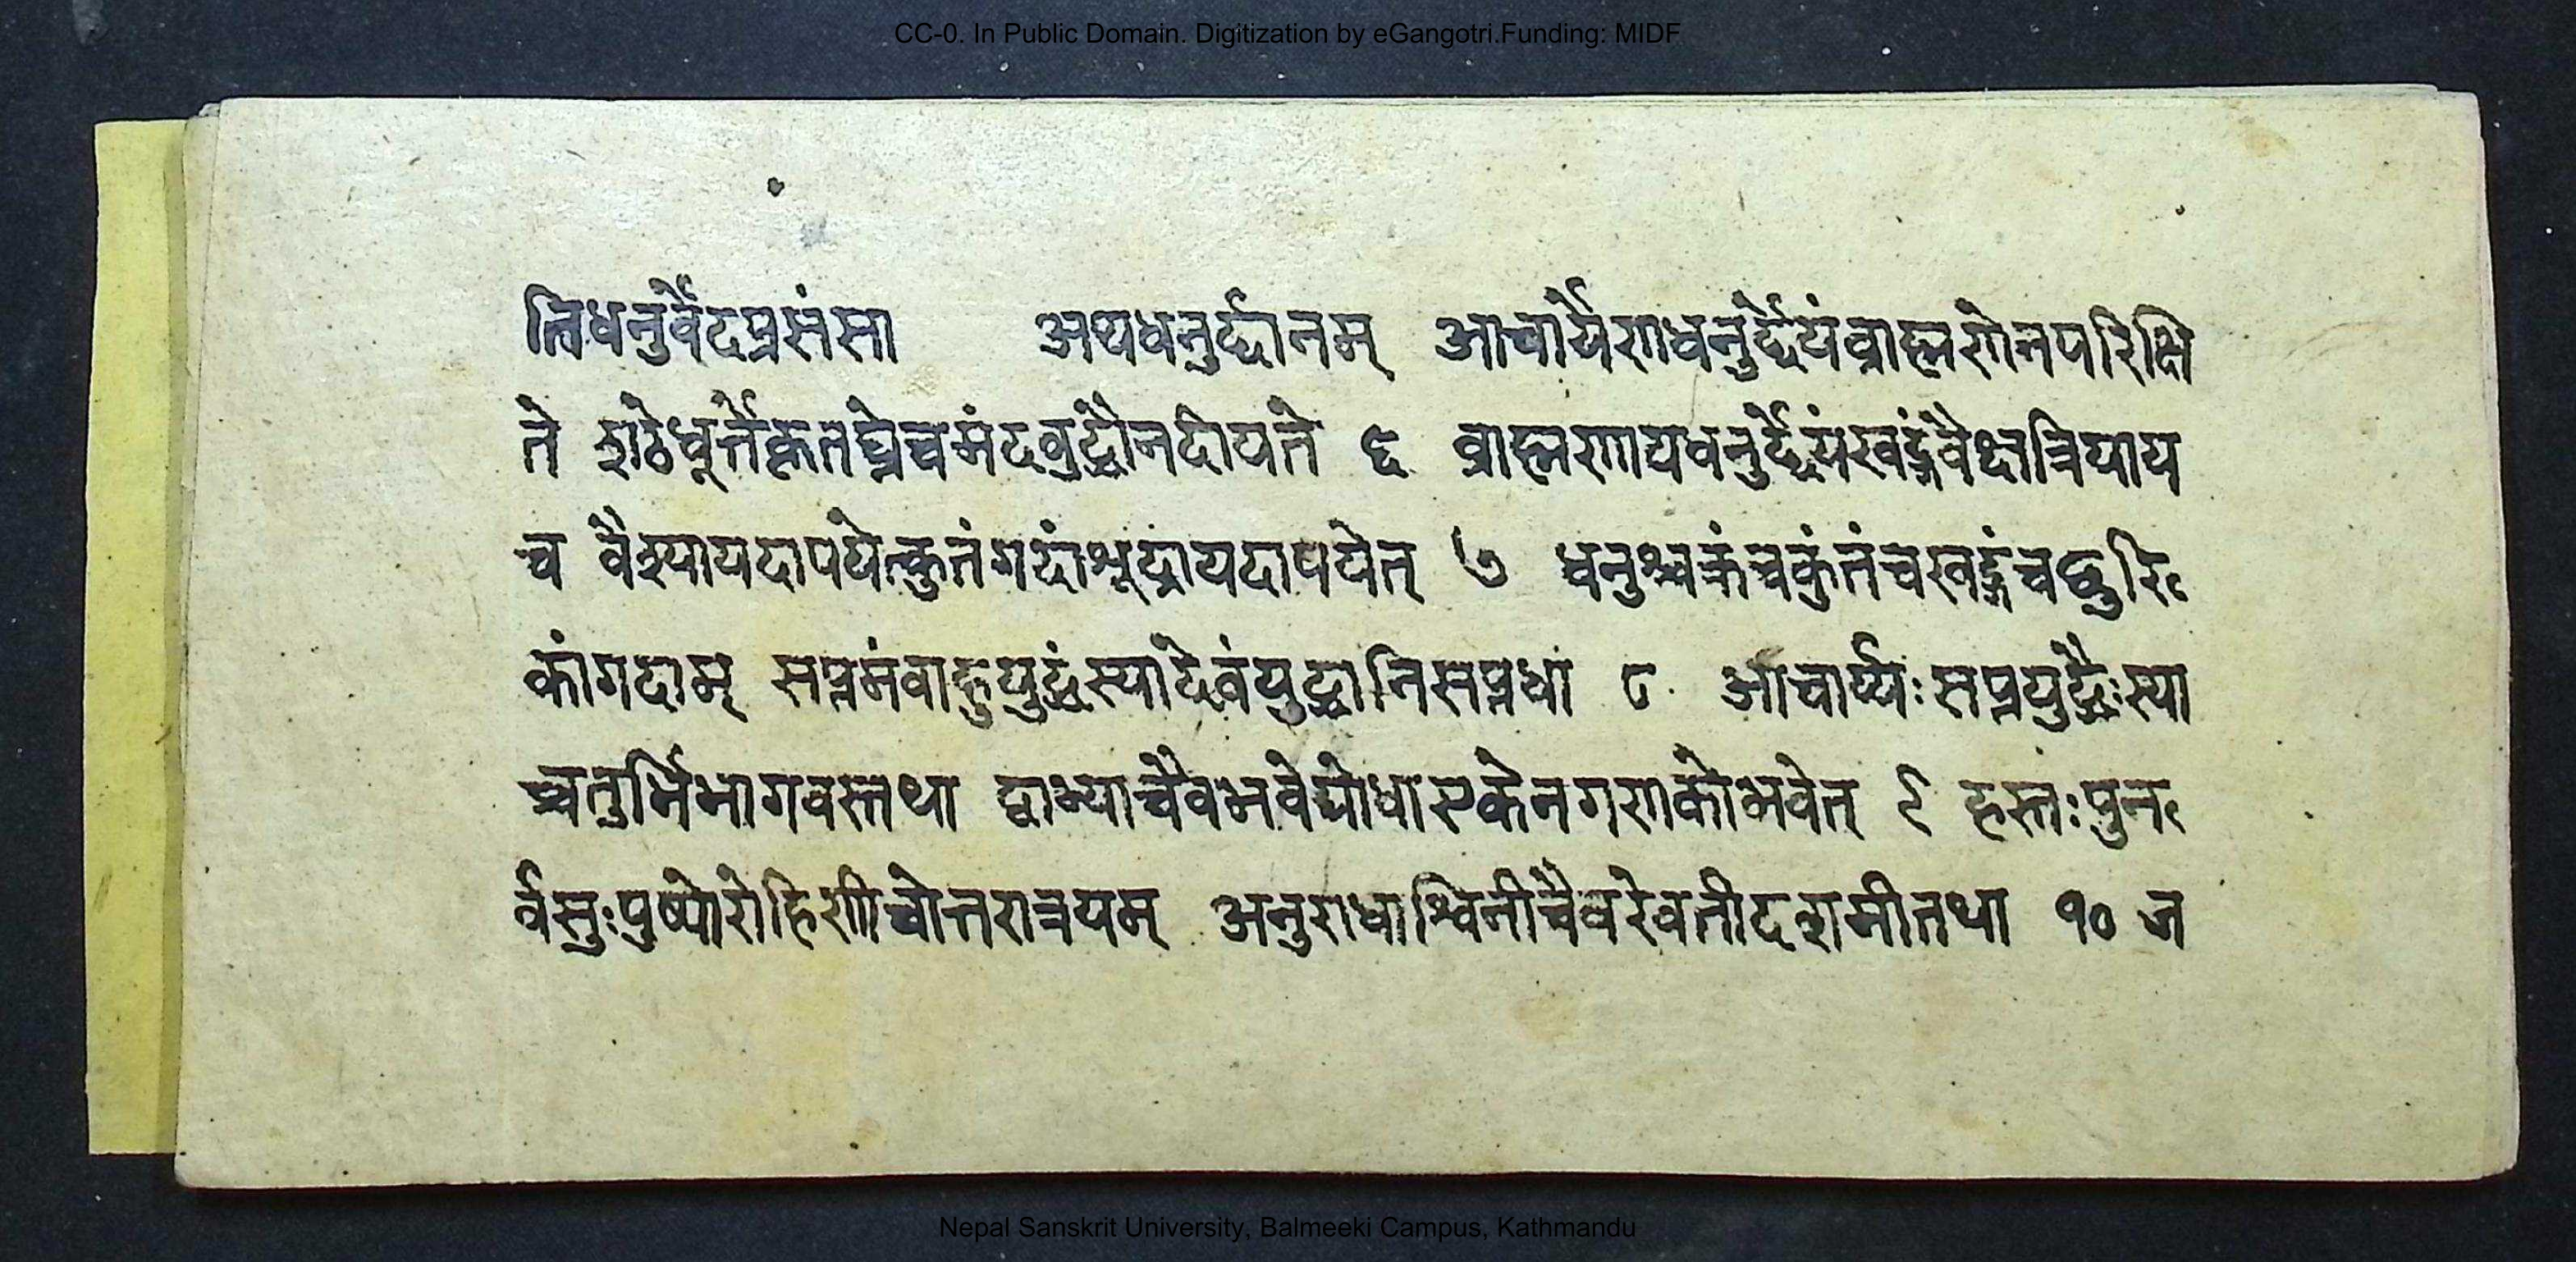 CC-0. In Public Domain. Digitization by eGangotri.Funding: MIDF
त्तिधनुर्वेदप्रसंसा अथधनुर्द्दानम् आचार्येणधनुर्द्देयंव्राह्मणेनपरिक्षि
ते शठेधूर्त्तेकृतघ्नेचमंदवुद्धौनदीयते ६ व्राह्मणायधनुर्द्देयंखड्गंवैक्षत्रियाय
च वैश्यायदापयेत्कुतंगदांशूद्रायदापयेत् ७ धनुश्चक्रंचकुंतंचखड्गंचछुरि
कांगदाम् सप्तमंवाहुयुद्धंस्यादेवंयुद्धानिसप्तधा ८ आचार्य्यःसप्तयुद्धैःस्या
च्चतुर्भिभागवस्तथा द्वाभ्याचैवभवेद्योधाएकेनगणकोभवेत् ९ हस्तःपुन
र्वसुःपुष्योरोहिणीचोत्तरात्रयम् अनुराधाश्विनीचैवरेवतीदशमीतथा १० ज
Nepal Sanskrit University, Balmeeki Campus, Kathmandu